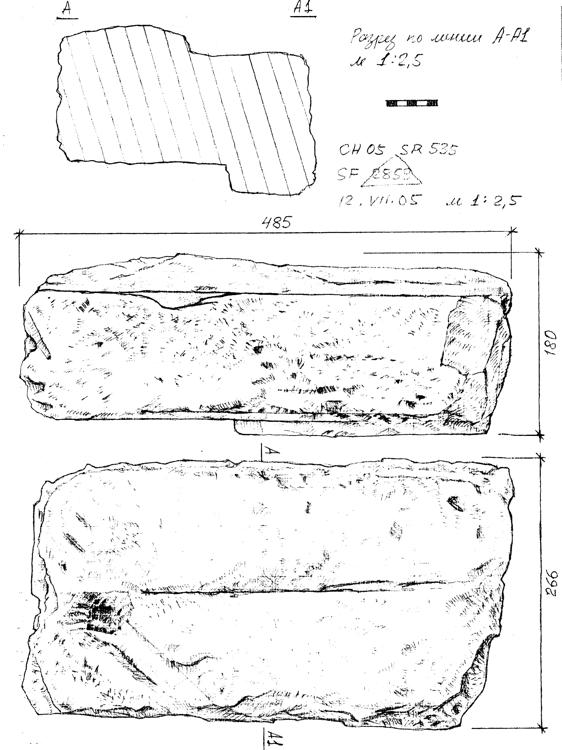 A A1
Разрез по линии A-A1
м 1:2,5
CH 05 SR 535
SF 2859
12.VII.05 м 1:2,5
485
180
A
266
A1